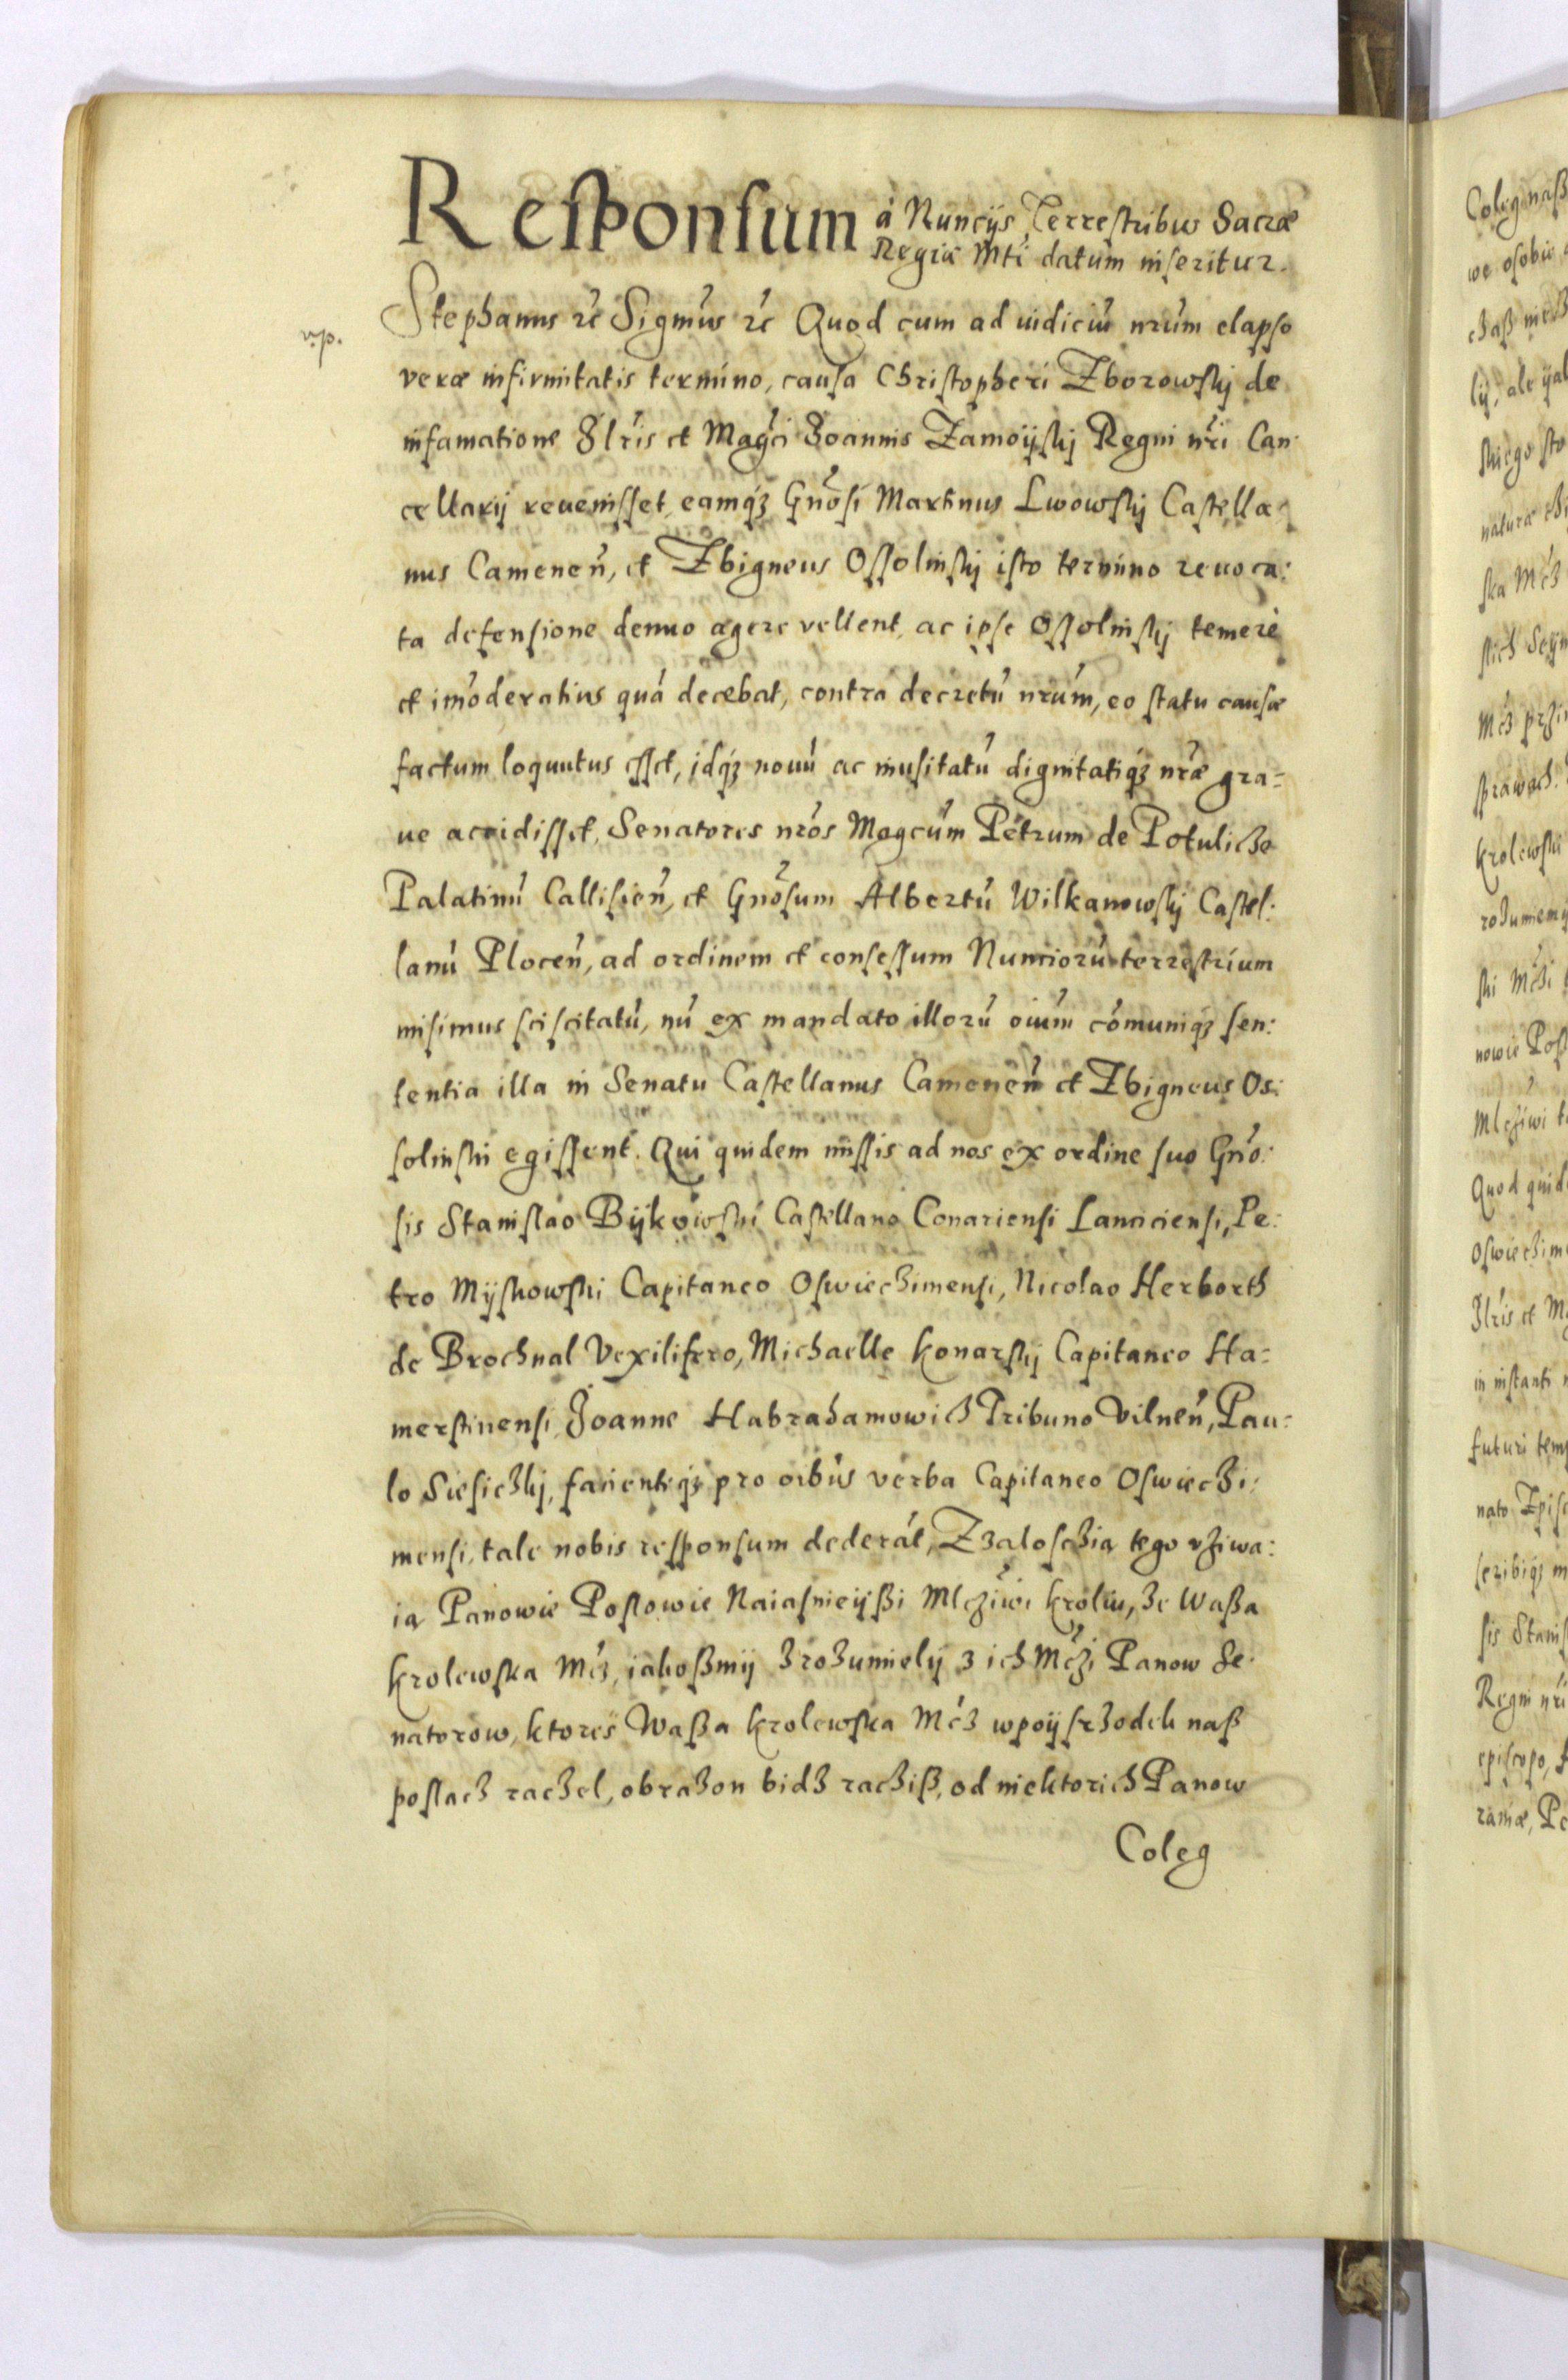 Responsum à Nuncijs Terrestribus Sacræ
Regiæ Mti datum inseritur.
Stephanus rc̃ Sigmũs rc̃ Quod cum ad iudiciũ nrũm elapso
veræ infirmitatis termino, causa Christopheri Zborowskj de
infamatione Jlrĩs et Magc̃i Joannis Zamoijskj Regni nrĩ Can:
cellarij reuenisset, eamqȝ Gnõsi Martinus Lwowskj Castella:
nus Camenen̄, et Zbigneus Ossolinskj isto termino reuoca:
ta defensione denuo agere vellent, ac ipse Ossolinskj temerè
et im̃oderatius quã decebat, contra decretũ nrũm, eo statu causæ
factum loquutus esset, idqȝ nouũ ac inusitatũ dignitatiqȝ nræ̃ gra=
ue accidisset, Senatores nrõs Magcũm Petrum de Potulicze
Palatinũ Callisien̄, et Gnõsum Albertũ Wilkanowskj Castel:
lanũ Plocen̄, ad ordinem et consessum Nunciorũ terrestrium
misimus sciscitatũ, nũ ex mandato illorũ oiũm cõmuniqȝ sen:
tentia illa in Senatu Castellanus Camenen̄ et Zbigneus Os:
solinski egissent. Qui quidem missis ad nos ex ordine suo Gnõ:
sis Stanislao Bijkowski Castellano Conariensi Lanciciensi, Pe:
tro Mijskowski Capitaneo Oswieczimensi, Nicolao Herborth
de Brochnal Vexilifero, Michaelle Konarskj Capitaneo Ha=
merstinensi, Joanne Habrahamowicz Tribuno Vilnen̄, Pau=
lo Siesiczkj, facientiqȝ pro oibũs verba Capitaneo Oswieczi:
mensi, tale nobis responsum dederãt, Zzaloscżią tego vżiwa:
ią Panowie Poslowie Naiasnieijßi Mlcżiwi kroliu, że Waßa
krolewska Mcż, iakoßmij zrozumielij z ich Mcżi Panow Se:
natorow, ktores Waßa krolewska Mcż wpoijsrzodek naß
poslacz raczel, obrazon bidz racziß, od niektorich Panow
Coleg
v.p.